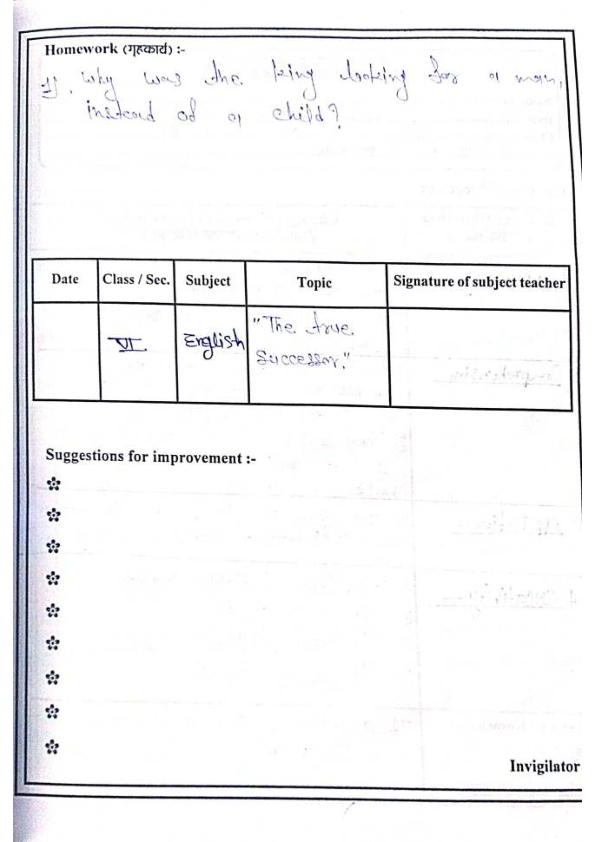 Homework (गृहकार्य) :-
1). Why was the king looking for a man,
instead of a child?
Date Class / Sec. Subject Topic Signature of subject teacher
VI English "The true
Successor."
Suggestions for improvement :-
Invigilator